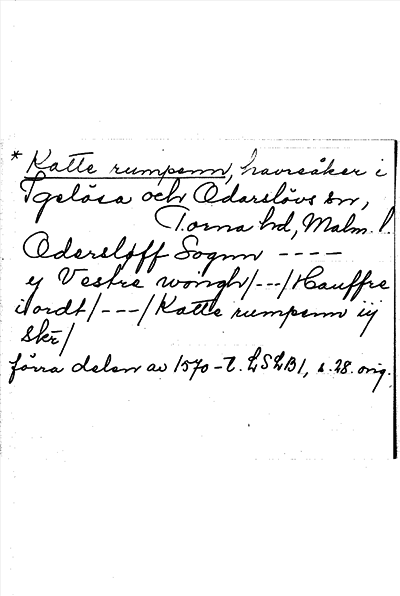 * Katte rumpenn, havreåker i
Igelösa och Odarslövs sn,
Torna hd, Malm. l.
Odersløff Sognn ----
ij Vestre wongh/---/Hauffre
iordt/---/Katte rumpenn iij
skr/
förra delen av 1570-t. LSLB1, s. 28. orig.